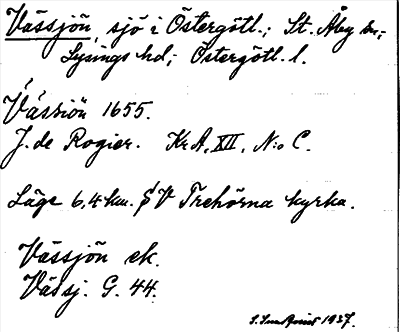 Vässjön, sjö i Östergötl.; St. Åby sn.;
Lysings hd; Östergötl. l.
Vässiön 1655.
J. de Rogier. KrA, XII, N:o C.
Läge 6,4 km. SV Trehörna kyrka.
Vässjön ek.
Vässj. G. 44.
1937.